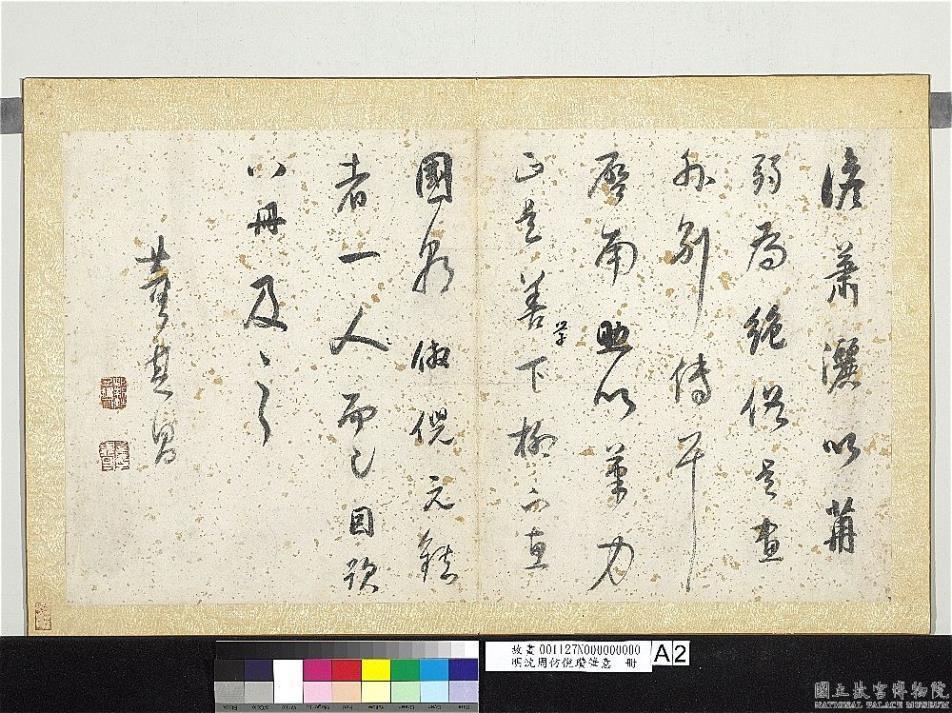 澹蕭灑以
弱為絕俗是畫
外別傳耳
啓南以筆力
正是善學下柳下惠
國朝倣倪元鎮
者一人而已因題
冊及之
董其昌
故畫 001127N000000000
明沈周仿倪瓚筆意 冊
A2
國立故宮博物院
NATIONAL PALACE MUSEUM